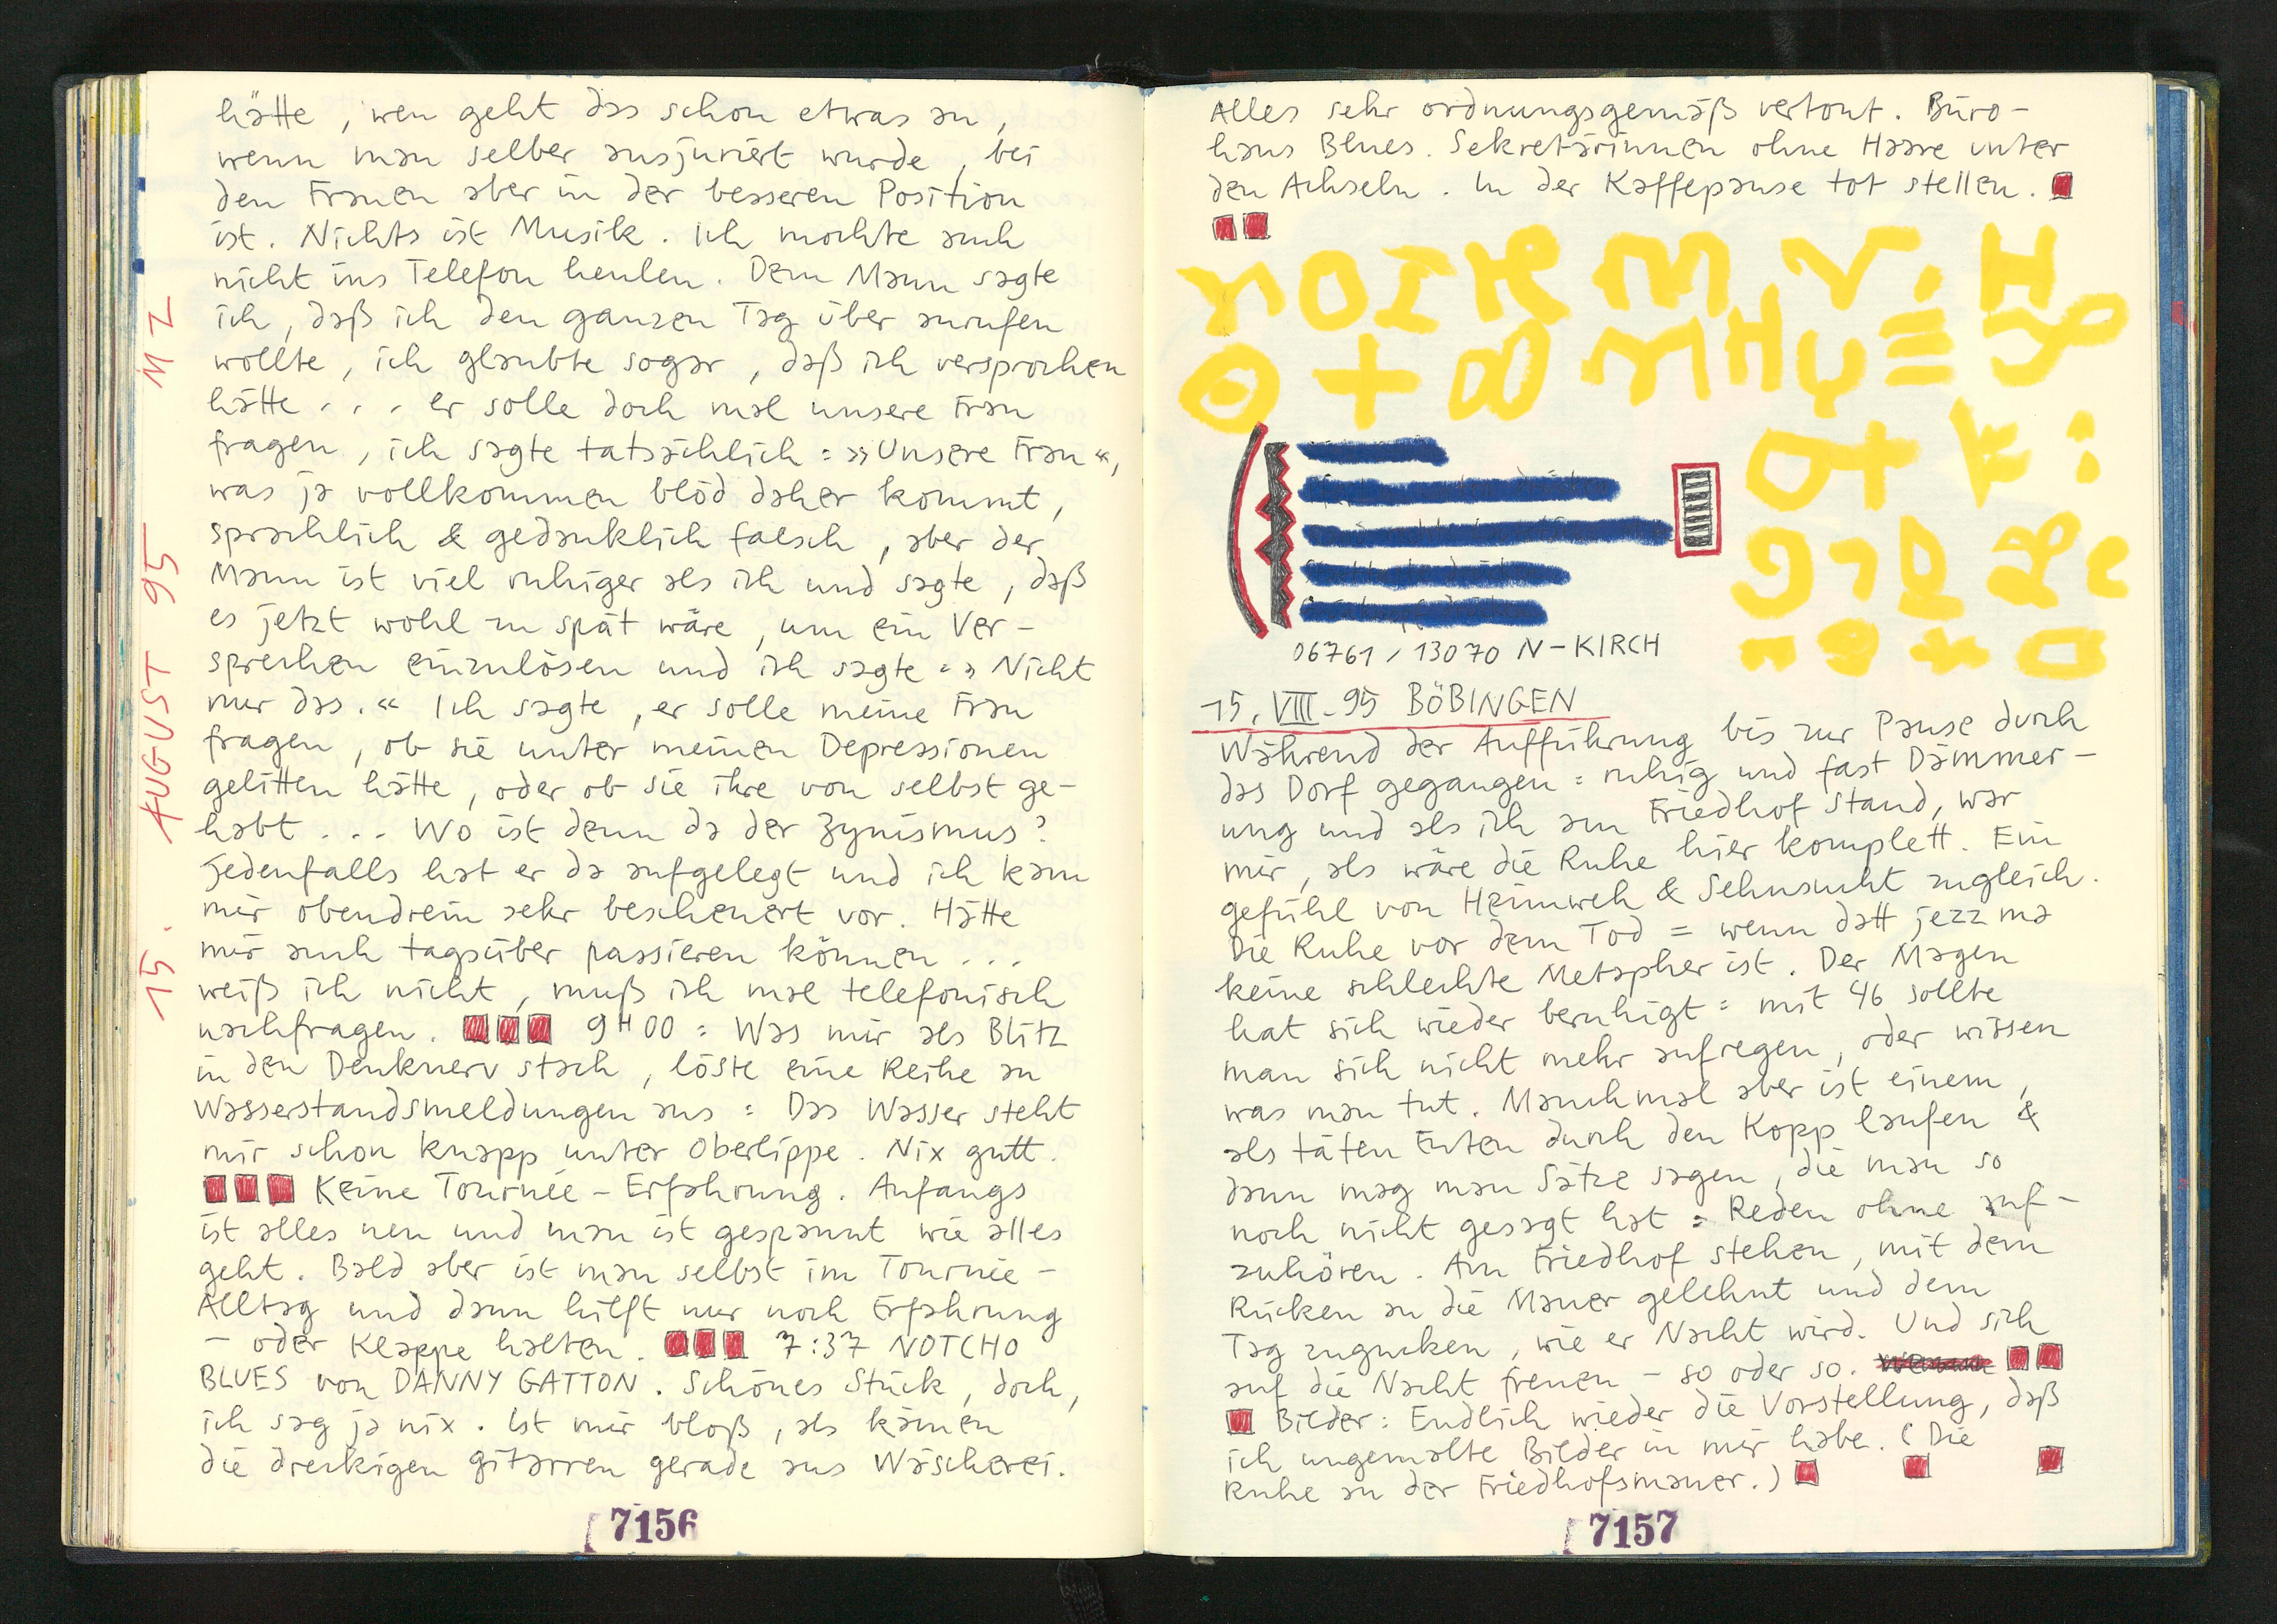 hätte, wen geht das schon etwas an,
wenn man selber ausjuriert wurde, bei
den Frauen aber in der besseren Position
ist. Nichts ist Musik. Ich mochte auch
nicht ins Telefon heulen. Dem Mann sagte
ich, daß ich den ganzen Tag über anrufen
wollte, ich glaubte sogar, daß ich versprochen
hätte . . . er solle doch mal unsere Frau
fragen, ich sagte tatsächlich: »Unsere Frau«,
was ja vollkommen blöd daher kommt,
sprachlich & gedanklich falsch, aber der
Mann ist viel ruhiger als ich und sagte, daß
es jetzt wohl zu spät wäre, um ein Ver-
sprechen einzulösen und ich sagte: » Nicht
nur das.« Ich sagte, er solle meine Frau
fragen, ob sie unter meinen Depressionen
gelitten hätte, oder ob sie ihre von selbst ge-
habt . . . Wo ist denn da der Zynismus?
Jedenfalls hat er da aufgelegt und ich kam
mir obendrein sehr bescheuert vor. Hätte
mir auch tagsüber passieren können . . .
weiß ich nicht, muß ich mal telefonisch
nachfragen. 9H00: Was mir als Blitz
in den Denknerv stach, löste eine Reihe an
Wasserstandsmeldungen aus: Das Wasser steht
mir schon knapp unter Oberlippe. Nix gutt.
Keine Tournée-Erfahrung. Anfangs
ist alles neu und man ist gespannt wie alles
geht. Bald aber ist man selbst im Tournée-
Alltag und dann hilft nur noch Erfahrung
– oder Klappe halten. 7:37 NOTCHO
BLUES von DANNY GATTON. Schönes Stück, doch,
ich sag ja nix. Ist mir bloß, als kämen
die dreckigen Gitarren gerade aus Wäscherei.
15. AUGUST 95 MZ
7156
Alles sehr ordnungsgemäß vertont. Büro-
haus Blues. Sekretärinnen ohne Haare unter
den Achseln. In der Kaffepause tot stellen.
06761 / 13070 N-KIRCH
15. VIII. 95 BÖBINGEN
Während der Aufführung bis zur Pause durch
das Dorf gegangen: ruhig und fast Dämmer-
ung und als ich am Friedhof stand, war
mir, als wäre die Ruhe hier komplett. Ein
gefühl von Heimweh & Sehnsucht zugleich.
Die Ruhe vor dem Tod = wenn datt jezz ma
keine schlechte Metapher ist. Der Magen
hat sich wieder beruhigt: mit 46 sollte
man sich nicht mehr aufregen, oder wissen
was man tut. Manchmal aber ist einem,
als täten Enten durch den Kopp laufen &
dann mag man Sätze sagen, die man so
noch nicht gesagt hat: Reden ohne auf-
zuhören. Am Friedhof stehen, mit dem
Rücken an die Mauer gelehnt und dem
Tag zugucken, wie er Nacht wird. Und sich
auf die Nacht freuen – so oder so.
Bilder: Endlich wieder die Vorstellung, daß
ich ungemalte Bilder in mir habe. (Die
Ruhe an der Friedhofsmauer.)
7157